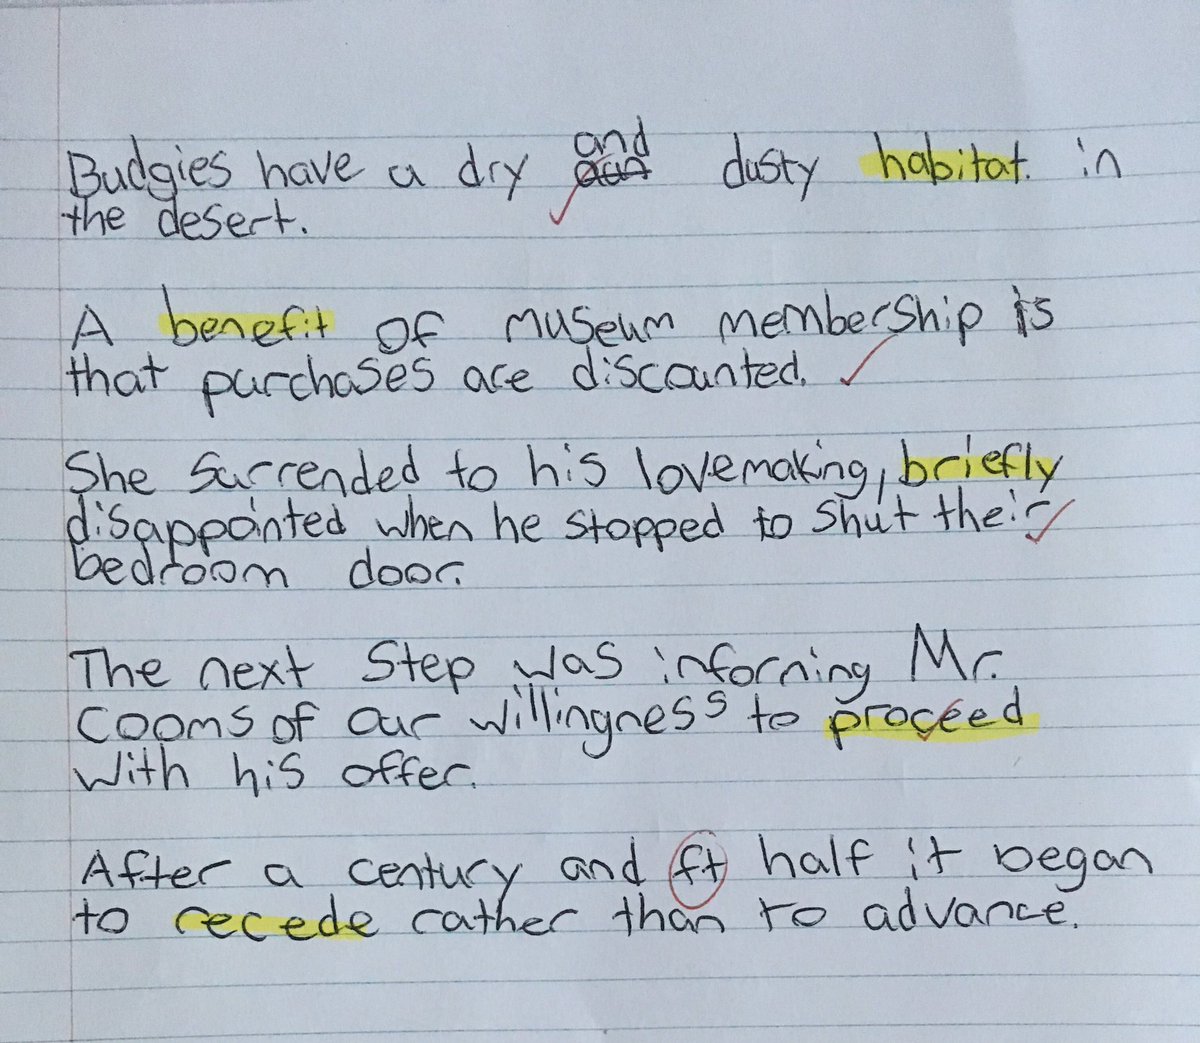 Budgies have a dry and dusty habitat. in
the desert.
A benefit of museum membership is
that purchases are discounted.
She surrended to his lovemaking, briefly
disappointed when he stopped to shut their
bedroom door.
The next step was informing Mr.
Cooms of our willingness to proceed
with his offer.
After a century and ft half it began
to recede rather than to advance.